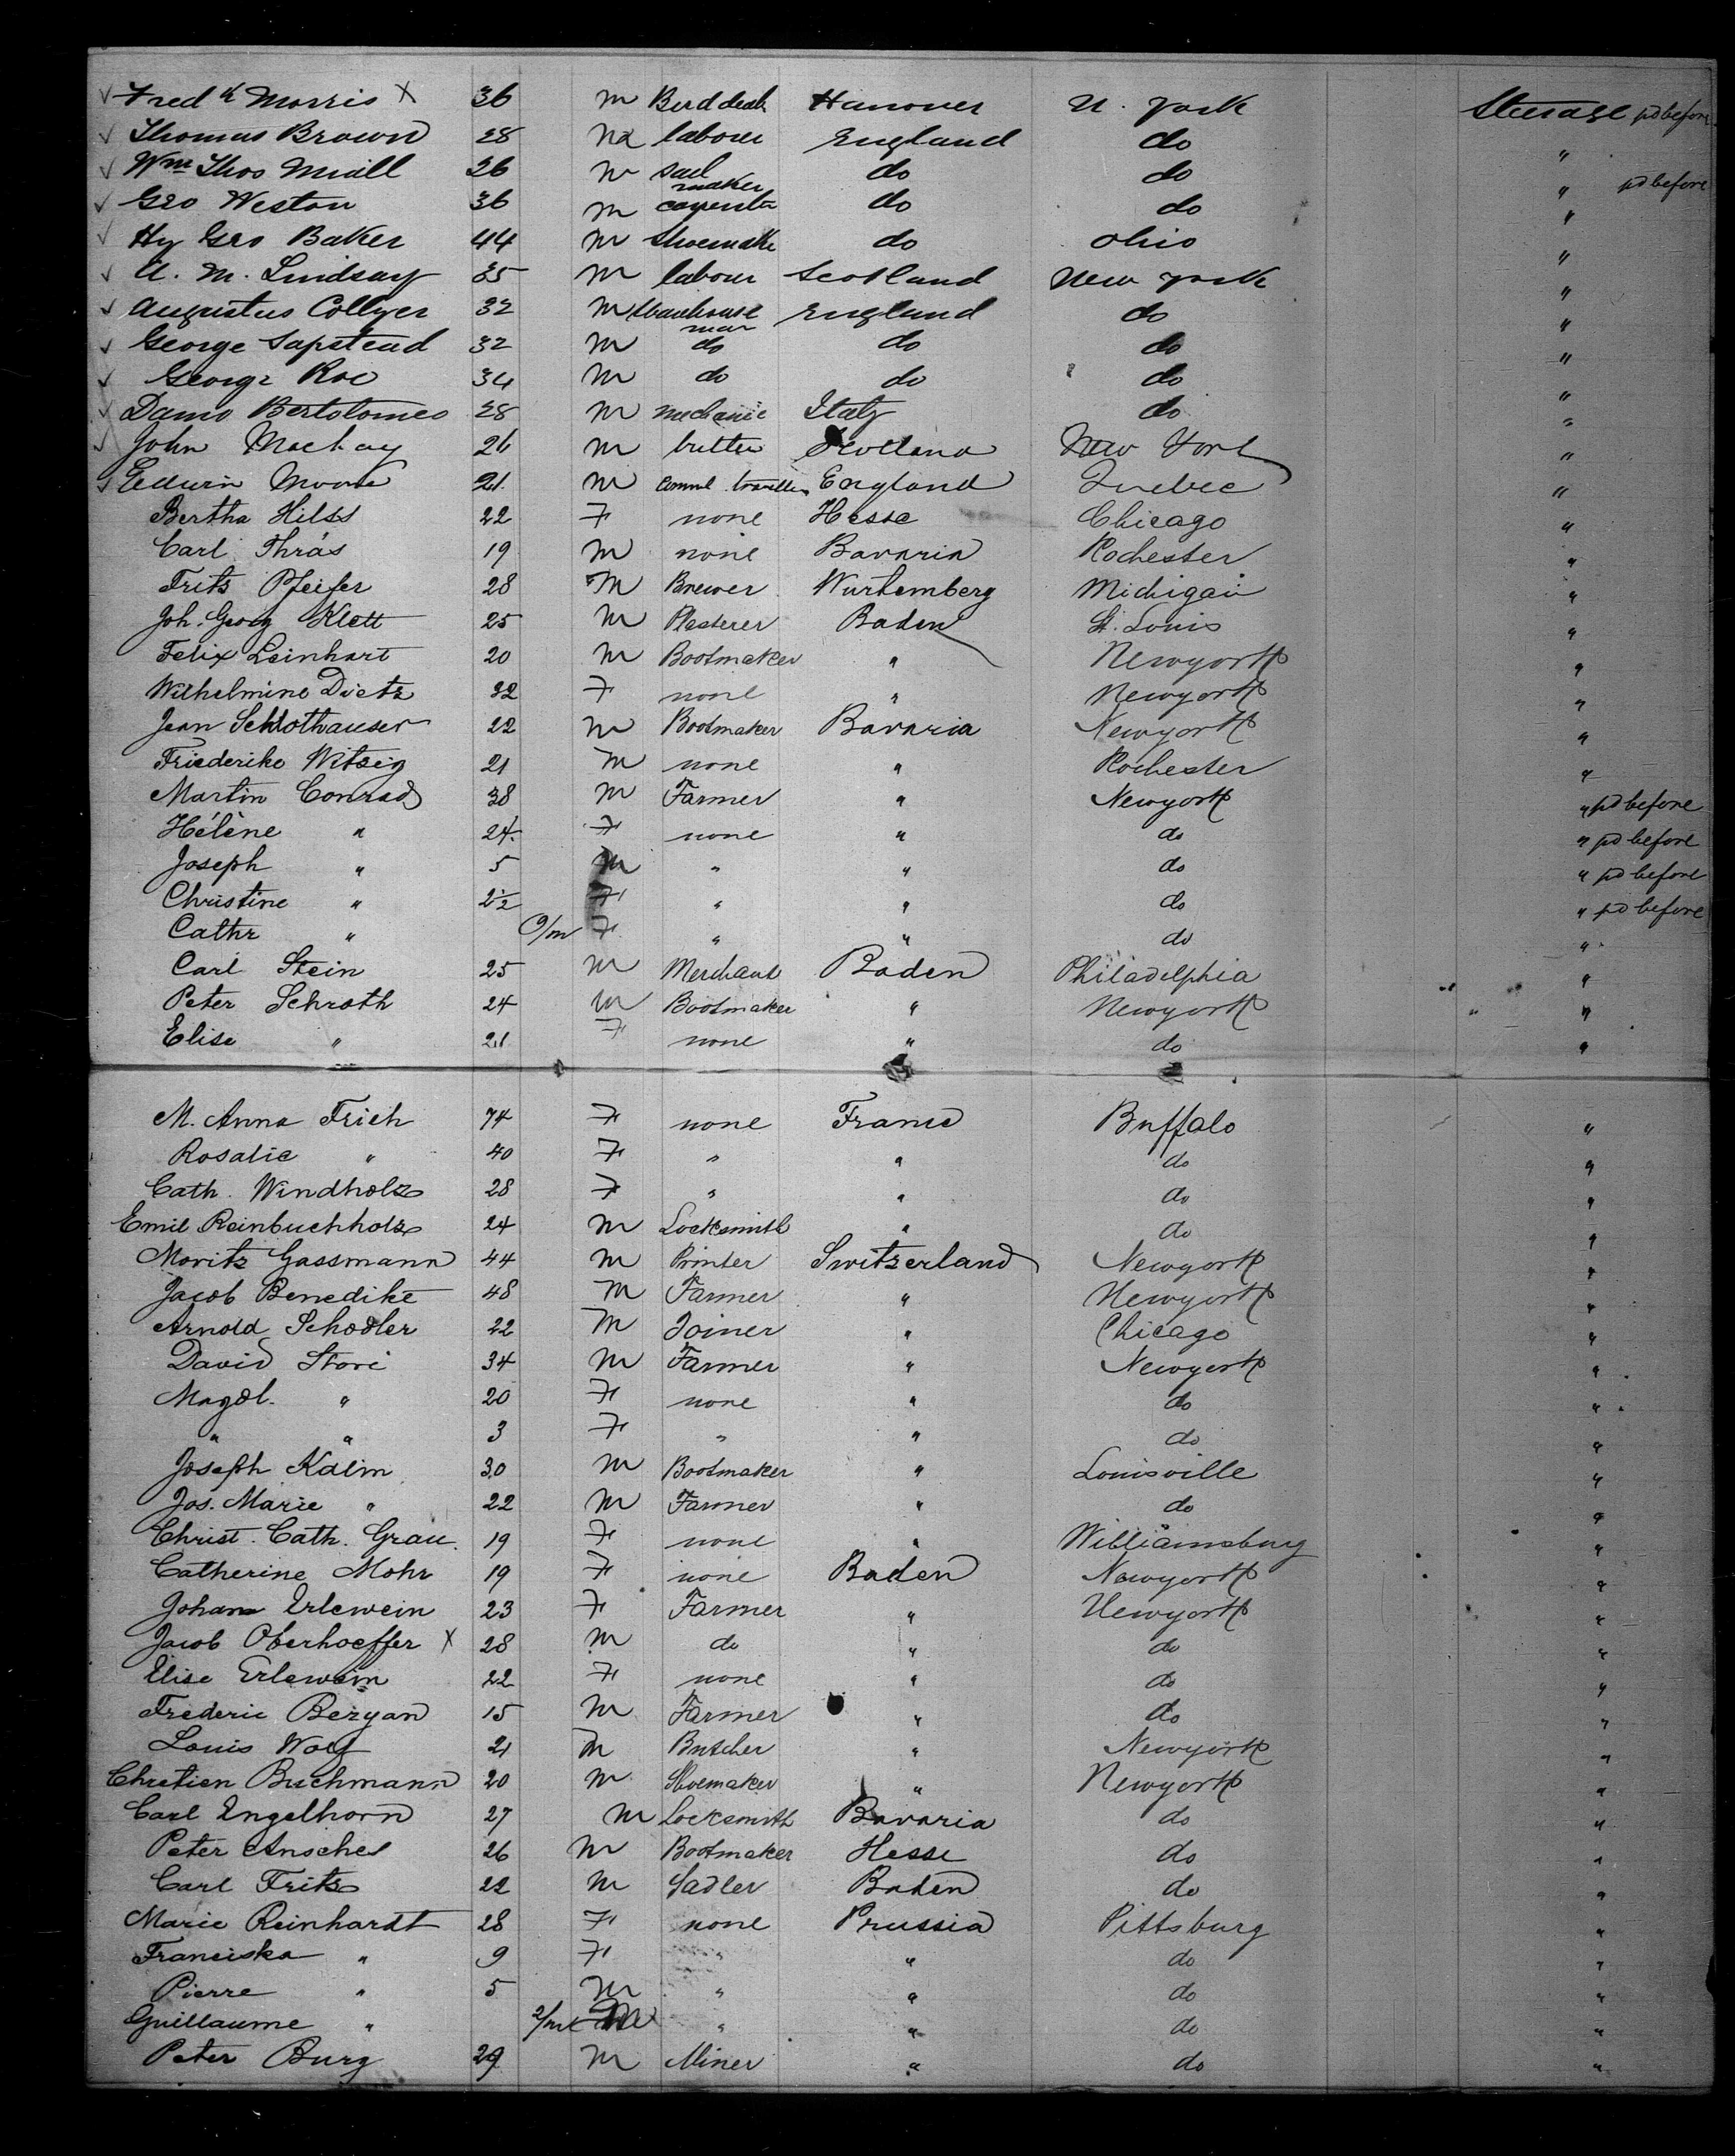 ✓ Fredk Morris X 36 m Bird deal Hanover N. York Steerage pd before
✓ Thomas Brown 28 m labourer England do "
✓ Wm Thos Miall 26 m sail maker do do " pd before
✓ Geo Weston 36 m carpenter do do "
✓ Hy Geo Baker 44 m shoemake do Ohio "
✓ A. M. Lindsay 35 m labour Scotland New York "
✓ Augustus Collyer 32 m Warehouse man England do "
✓ George Sapstead 32 m do do do "
✓ George Roe 34 m do do do "
✓ Damo Bertolomeo 28 m mechanic Italy do "
✓ John Mackay 26 m butler Scotland New York "
✓ Edwin Moore 21 m comml traveller England Quebec "
Bertha Hilss 22 F none Hesse Chicago "
Carl Thrás 19 m none Bavaria Rochester "
Frits Pfeifer 28 M Brewer Wurtemberg Michigan "
Joh. Georg Klett 25 M Plasterer Baden St. Louis "
Felix Leinhart 20 M Bootmaker " Newyork "
Wilhelmine Dietz 32 F none " Newyork "
Jean Schlothauser 22 m Bootmaker Bavaria Newyork "
Friederike Witzig 21 m none " Rochester "
Martin Conrad 38 m Farmer " Newyork " pd before
Hélène " 24 F none " do " pd before
Joseph " 5 m " " do " pd before
Christine " 2½ F " " do " pd before
Cathr " 9/m F " " do "
Carl Stein 25 m Merchant Baden Philadelphia "
Peter Schroth 24 m Bootmaker " Newyork "
Elise " 21 F none " do "
M. Anna Frich 74 F none France Buffalo "
Rosalie " 40 F " " do "
Cath. Windholz 28 F " " do "
Emil Reinbuchholz 24 m Locksmith " do "
Moritz Gassmann 44 m Printer Switzerland Newyork "
Jacob Benedikt 48 m Farmer " Newyork "
Arnold Schodler 22 m Joiner " Chicago "
David Stori 34 m Farmer " Newyork "
Magdl. " 20 F none " do "
" " 3 F " " do "
Joseph Kälin 30 m Bootmaker " Louisville "
Jos. Marie " 22 m Farmer " do "
Christ. Cath. Grau 19 F none " Williamsburg "
Catherine Mohr 19 F none Baden Newyork "
Johann Erlewein 23 F Farmer " Newyork "
Jacob Oberhoeffer X 28 m do " do "
Elise Erlewein 22 F none " do "
Frederic Bezyan 15 m Farmer " do "
Louis Wolf 21 m Butcher " Newyork "
Chretien Buchmann 20 m Shoemaker " Newyork "
Carl Engelhorn 27 m Locksmith Bavaria do "
Peter Anschel 26 m Bootmaker Hesse do "
Carl Frits 22 m Sadler Baden do "
Marie Reinhardt 28 F none Prussia Pittsburg "
Franciska " 9 F " " do "
Pierre " 5 m " " do "
Guillaume " 2/m M " " do "
Peter Burg 29 m Miner " do "